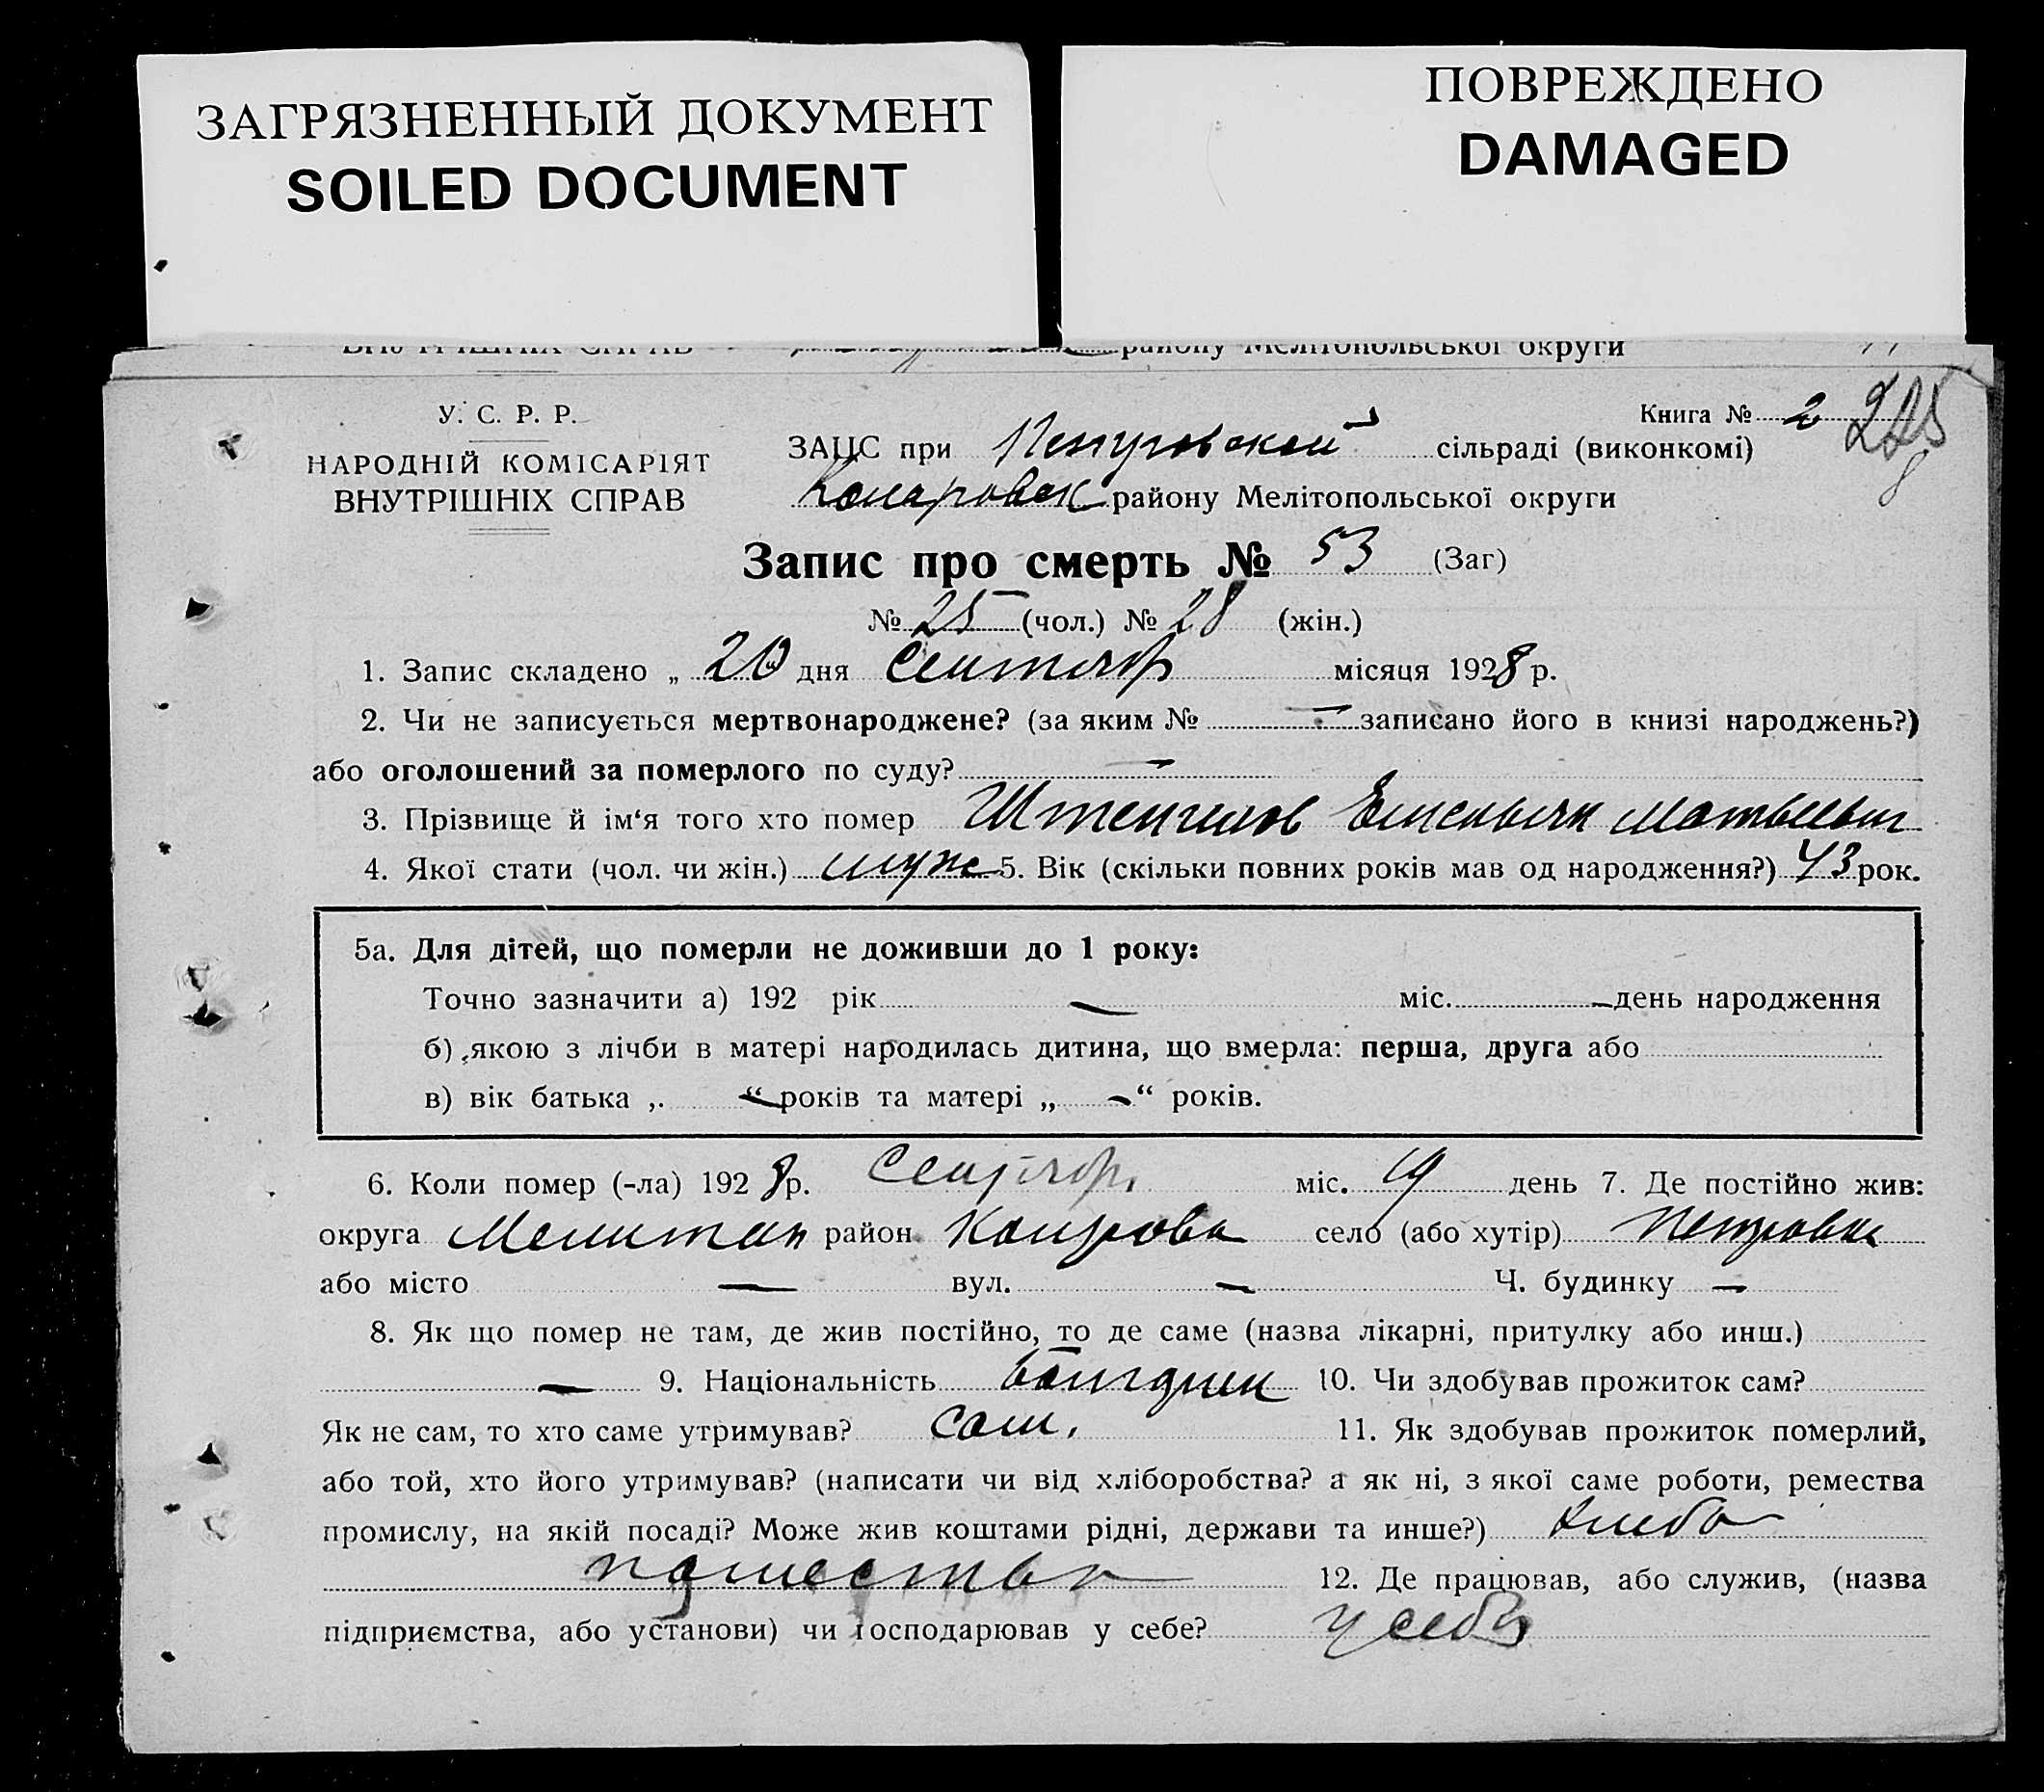 ЗАГРЯЗНЕННЫЙ ДОКУМЕНТ
SOILED DOCUMENT
ПОВРЕЖДЕНО
DAMAGED
ВНУТРІШНІХ СПРАВ району Мелітопольської округи
У. С. Р. Р.
НАРОДНІЙ КОМІСАРІЯТ
ВНУТРІШНІХ СПРАВ
Книга № 2
ЗАЦС при Петровской сільраді (виконкомі)
района Мелітопольської округи
Запис про смерть № 53 (Заг)
№ 25 (чол.) № 28 (жін.)
1. Запис складено „ 20 дня Сентябр місяця 1928 р.
2. Чи не записується мертвонароджене? (за яким № — записано його в книзі народжень?)
або оголошений за померлого по суду? —
3. Прізвище й ім‘я того хто помер Матвеевич
4. Якої стати (чол. чи жін.) муж 5. Вік (скільки повних років мав од народження?) 43 рок.
5а. Для дітей, що померли не доживши до 1 року:
Точно зазначити а) 192 рік — міс. — день народження
б) якою з лічби в матері народилась дитина, що вмерла: перша, друга або
в) вік батька „ — “ років та матері „ — “ років.
6. Коли помер (-ла) 1928 р. Сентябр. міс. 19 день 7. Де постійно жив:
округа Мелитоп район село (або хутір) Петровка
або місто — вул. — Ч. будинку —
8. Як що помер не там, де жив постійно, то де саме (назва лікарні, притулку або инш.)
— 9. Національність 10. Чи здобував прожиток сам?
Як не сам, то хто саме утримував? Сам. 11. Як здобував прожиток померлий,
або той, хто його утримував? (написати чи від хліборобства? а як ні, з якої саме роботи, ремества
промислу, на якій посаді? Може жив коштами рідні, держави та инше?) Хлебо
пашества 12. Де працював, або служив, (назва
підприємства, або установи) чи господарював у себе? у себя